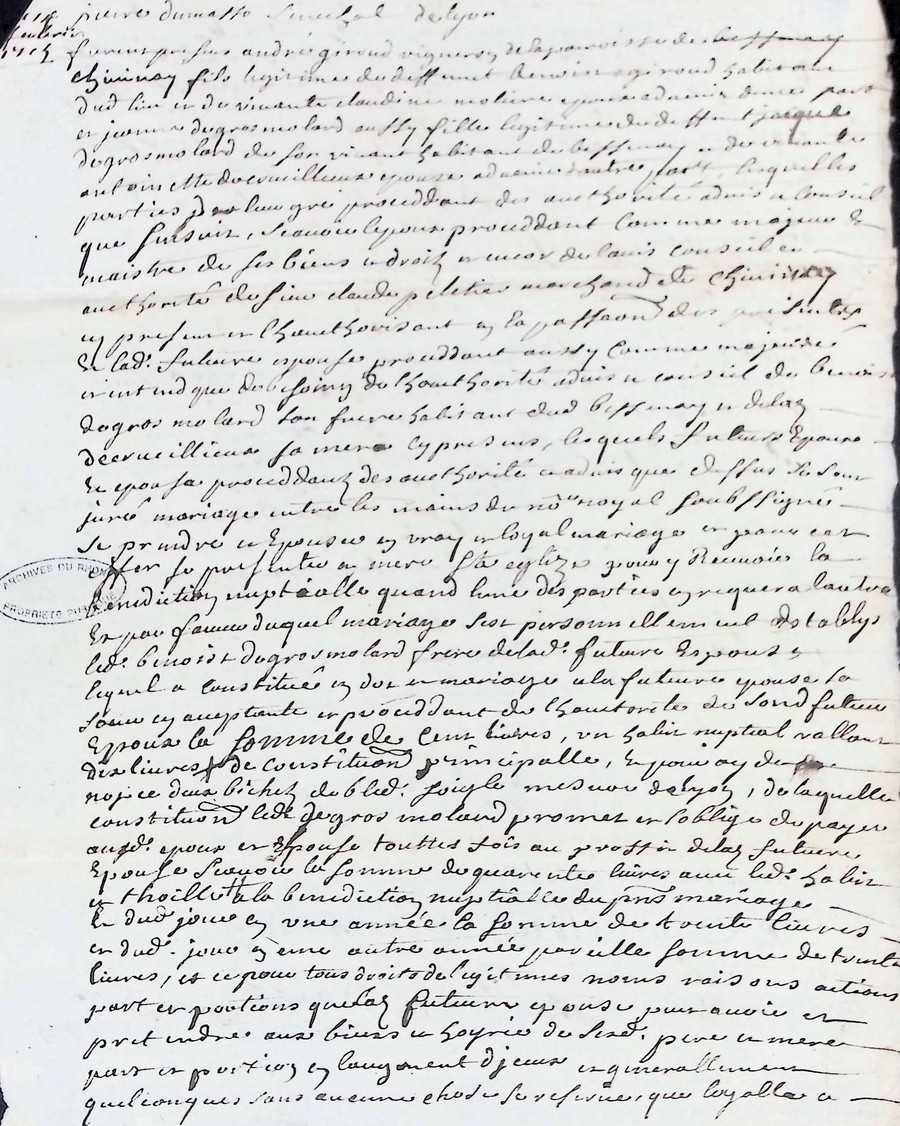 pierre dumas Senechal de lyon
furent presens andré giroud vigneron de la parroisse de bessenay
chivinay fils legitime de deffunt benoist giroud habitant
dud lieu et de vivante claudine moliere epoux advenir d'une part
et jeanne degrosmolard aussy fille legitime de deffunt jacque
degrosmolard de son vivant habitant de bessenay et de vivante
antoinette decrueillieux epouse advenir d'autre part, lesquelles
parties de leur gré proceddant des authorité advis et conseil
que sensuit, scavoir lepoux proceddant comme majeur et
maistre de ses biens et droitz et encor de lavis conseil et
authorité de sieur claude peletier marchand de chivinay
cy present et lhauthorisant en la passaon des presentes
Et lad. future epouse proceddant aussy comme majeure
et en tend que de besoing de lhauthorité advis et conseil de benoist
degrosmolard son frere habitant dud bessenay et de laz
decrueillieux sa mere cy presens, lesquels futurs Epoux
Et epouse proceddantz des authorité et advis que dessus se sont
juré mariage entre les mains du nore royal soubssigné
se prendre et Epouser en vray et loyal mariage et pour cet
effet se presenter a mere Ste eglize pour y Recevoir la
benediction nuptialle quand lune des parties en requera lautre
Et par faveur duquel mariage sest personnellement Establys
led. benoist degrosmolard frere de lad. future Espouze
lequel a constitué en dot et mariage a la future epouse sa
soeur en acceptante et proceddant de lhautorité de sond futeur
Epoux la somme de cent livres, un habit nuptial vallant
dix livres de constitution principalle, Et pour ay de
nopce deux bichetz de bled. soigle mesure de lyon, de laquelle
constitution led. degrosmolard promet et soblige de payer
ausd. epoux et Espouse touttes fois au proffit de laz future
Epouse scavoir la somme de quarente livres avec led. habit
et thoillette a la benediction nuptialle du pnt mariage
Et dud jour en une année la somme de trente livres
et dud. jour en une autre année pareille somme de trente
livres, et ce pour tous droits de legitimes noms raisons actions
part et portions que laz future epouse peut avoir et
pretendre aux biens et hoyrie de sesd. pere et mere
part et portion en laugment d'jceux et generallement
quelconques sans aucune chose se reserver, que loyalle e
ARCHIVES DU RHONE
PROPRIETE PUBLIQUE